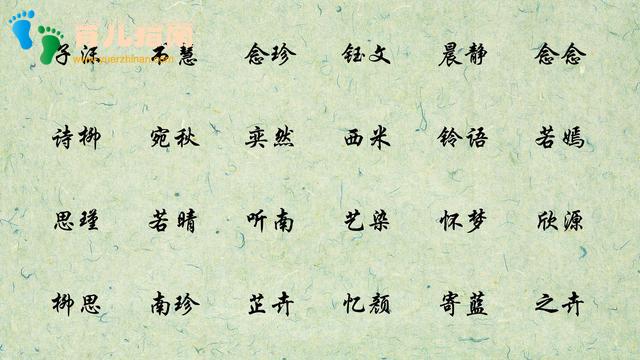 育儿指南
www.yuerzhinan.com
慧 念珍 钰文 晨静 念念
诗柳 宛秋 奕然 西米 铃语 若嫣
思瑾 若晴 听南 艺染 怀梦 欣源
柳思 南珍 芷卉 忆颜 寄蓝 之卉